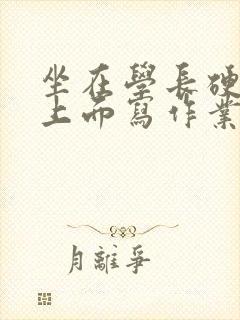 坐在學長硬
上而寫作業
月離爭